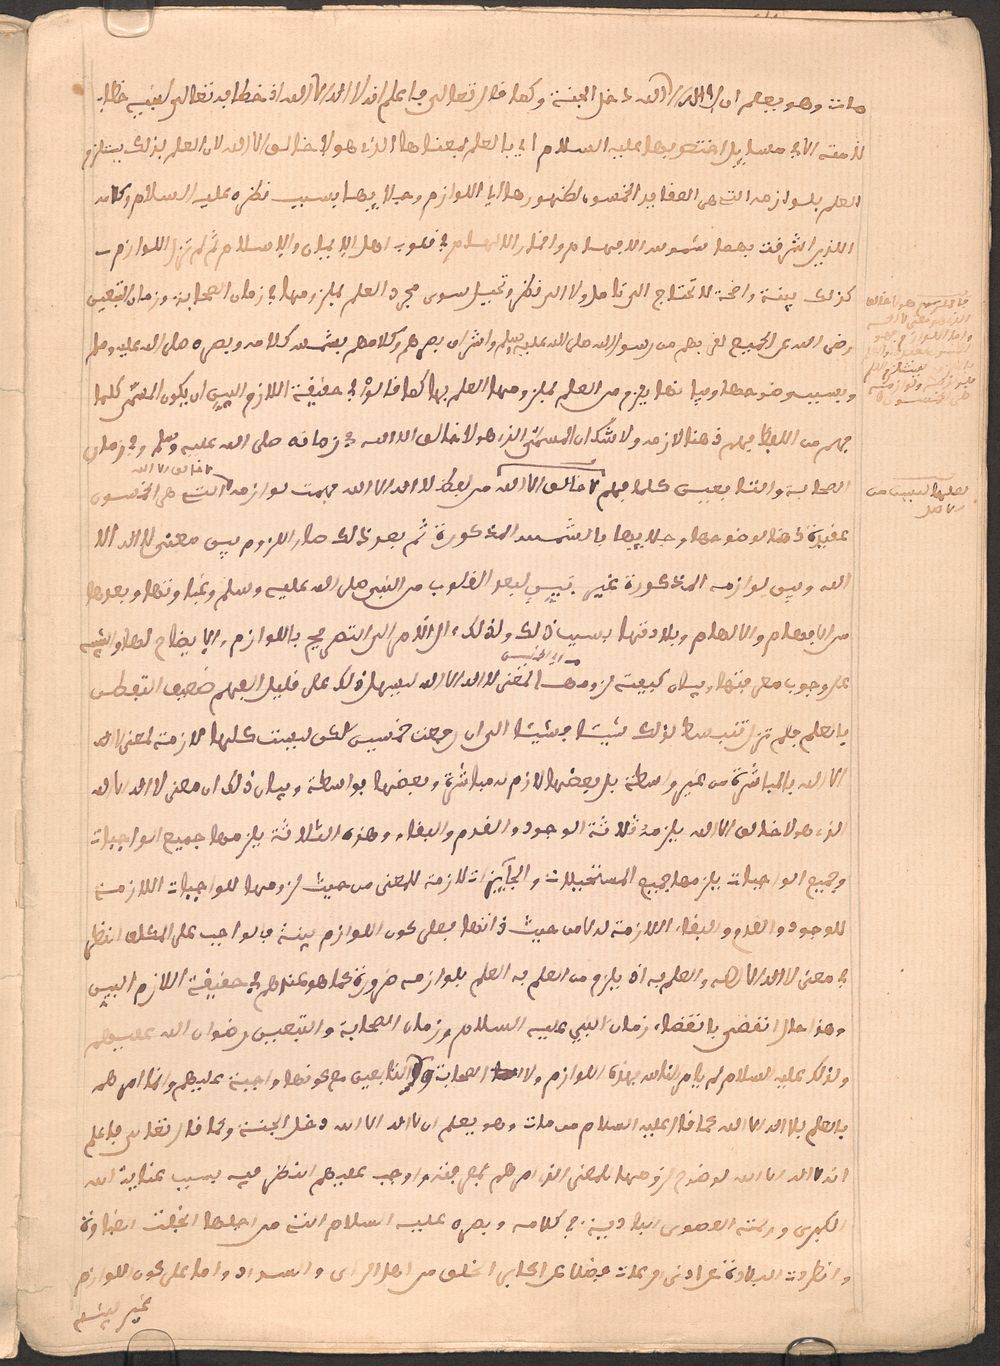 مات وهو يعلم ان لا اله الا الله دخل الجنة وكما قال تعالى فاعلم انه لا اله الا الله اذ خطابه تعالى لنبيه خطاب
لامته الا في مسايل اختص بها عليه السلام اي بالعلم بمعناها الذي هو لا خالق الا الله لان العلم بذلك يستلزم
العلم بلوازمه التي هي العقايد الخمسون لظهور هذه اللوازم وجلايها بسبب نظره عليه السلام وكلامه
اللذين اشرقت بهما شموس الافهام والالهام في قلوب اهل الايمان والاسلام ثم لم تزل اللوازم
كذلك بينة واضحة لا تحتاج الى تامل ولا الى نظر وتخييل سوى مجرد العلم بملزومها في زمان الصحابة وزمان التبعين
رضى الله عن الجميع لقربهم من رسول الله صلى الله عليه وسلم واشراق بصرهم وكلامهم بشمس كلامه وبصره صلى الله عليه وسلم
وبسبب وضوحها وبيانها يلزم من العلم بملزومها العلم بها كما قالوا في حقيقة اللازم البين ان يكون المسمى كلما
فهم من اللفظ فهم ذهنا لازمه ولا شك ان المسمى الذي هو لا خالق الا الله في زمانه صلى الله عليه وسلم وفي زمان
الصحابة والتابعين كلما فهم لا خالق الا الله من لفظ لا اله الا الله فهمت لوازمه التي هي الخمسون
لا خالق الا الله
عقيدة ذهنا لوضوحها وجلايها بالشمس المذكورة ثم بعد ذلك صار اللزوم بين معنى لا اله الا
الله وبين لوازمه المذكورة غير بين لبعد القلوب من النبي صلى الله عليه وسلم وغباوتها وبعدها
من الافهام والالهام وبلادتها بسبب ذلك ولذلك ال الامر الى التصريح باللوازم والايضاح لها والتنبيه
على وجوب معرفتها وبيان كيفية لزومها لمعنى لا اله الا الله ليسهل ذلك على قليل الفهم ضعيف التفطن
بالعلم فلم تزل تنبسط لذلك شيئا فشيئا الى ان رجعت خمسين لكن ليست كلها لازمة لمعنى لا اله
الا الله بالمباشرة من غير واسطة بل بعضها لازم له مباشرة وبعضها بواسطة وبيان ذلك ان معنى لا اله الا الله
الذي هو لا خالق الا الله يلزمه ثلاثة الوجود والقدم والبقاء وهذه الثلاثة يلزمها جميع الواجبات
وجميع الواجبات يلزمها جميع المستحيلات والجايزات لازمة للمعنى من حيث لزومها للواجبات اللازمة
للوجود والقدم والبقاء اللازمة له لا من حيث ذاتها فعلى كون اللوازم بينة فالواجب على المكلف النظر
في معنى لا اله الا الله والعلم به اذ يلزم من العلم به العلم بلوازمه ضرورة كما هو عندهم في حقيقة اللازم البين
وهذا حال انقضى بانقضاء زمان النبي عليه السلام وزمان الصحابة والتبعين رضوان الله عليهم
ولذلك عليه السلام لم يامر الناس بهذه اللوازم ولا الصحابة والتابعين مع كونها واجبة عليهم وانما امرهم
بالعلم بلا اله الا الله كما قال عليه السلام من مات وهو يعلم ان لا اله الا الله دخل الجنة وكما قال تعالى فاعلم
انه لا اله الا الله لوضوح لزومها للمعنى الذي امرهم بمعرفته واوجب عليهم النظر فيه بسبب عناية الله
الكبرى ورحمته القصوى البادية في كلامه وبصره عليه السلام التي من اجلها انجلت الغباوة
وانطردت البلادة عن ادنى العربان فضلا عن اكابر الخلق من اهل الراى والسداد واما على كون اللوازم
غير بينة